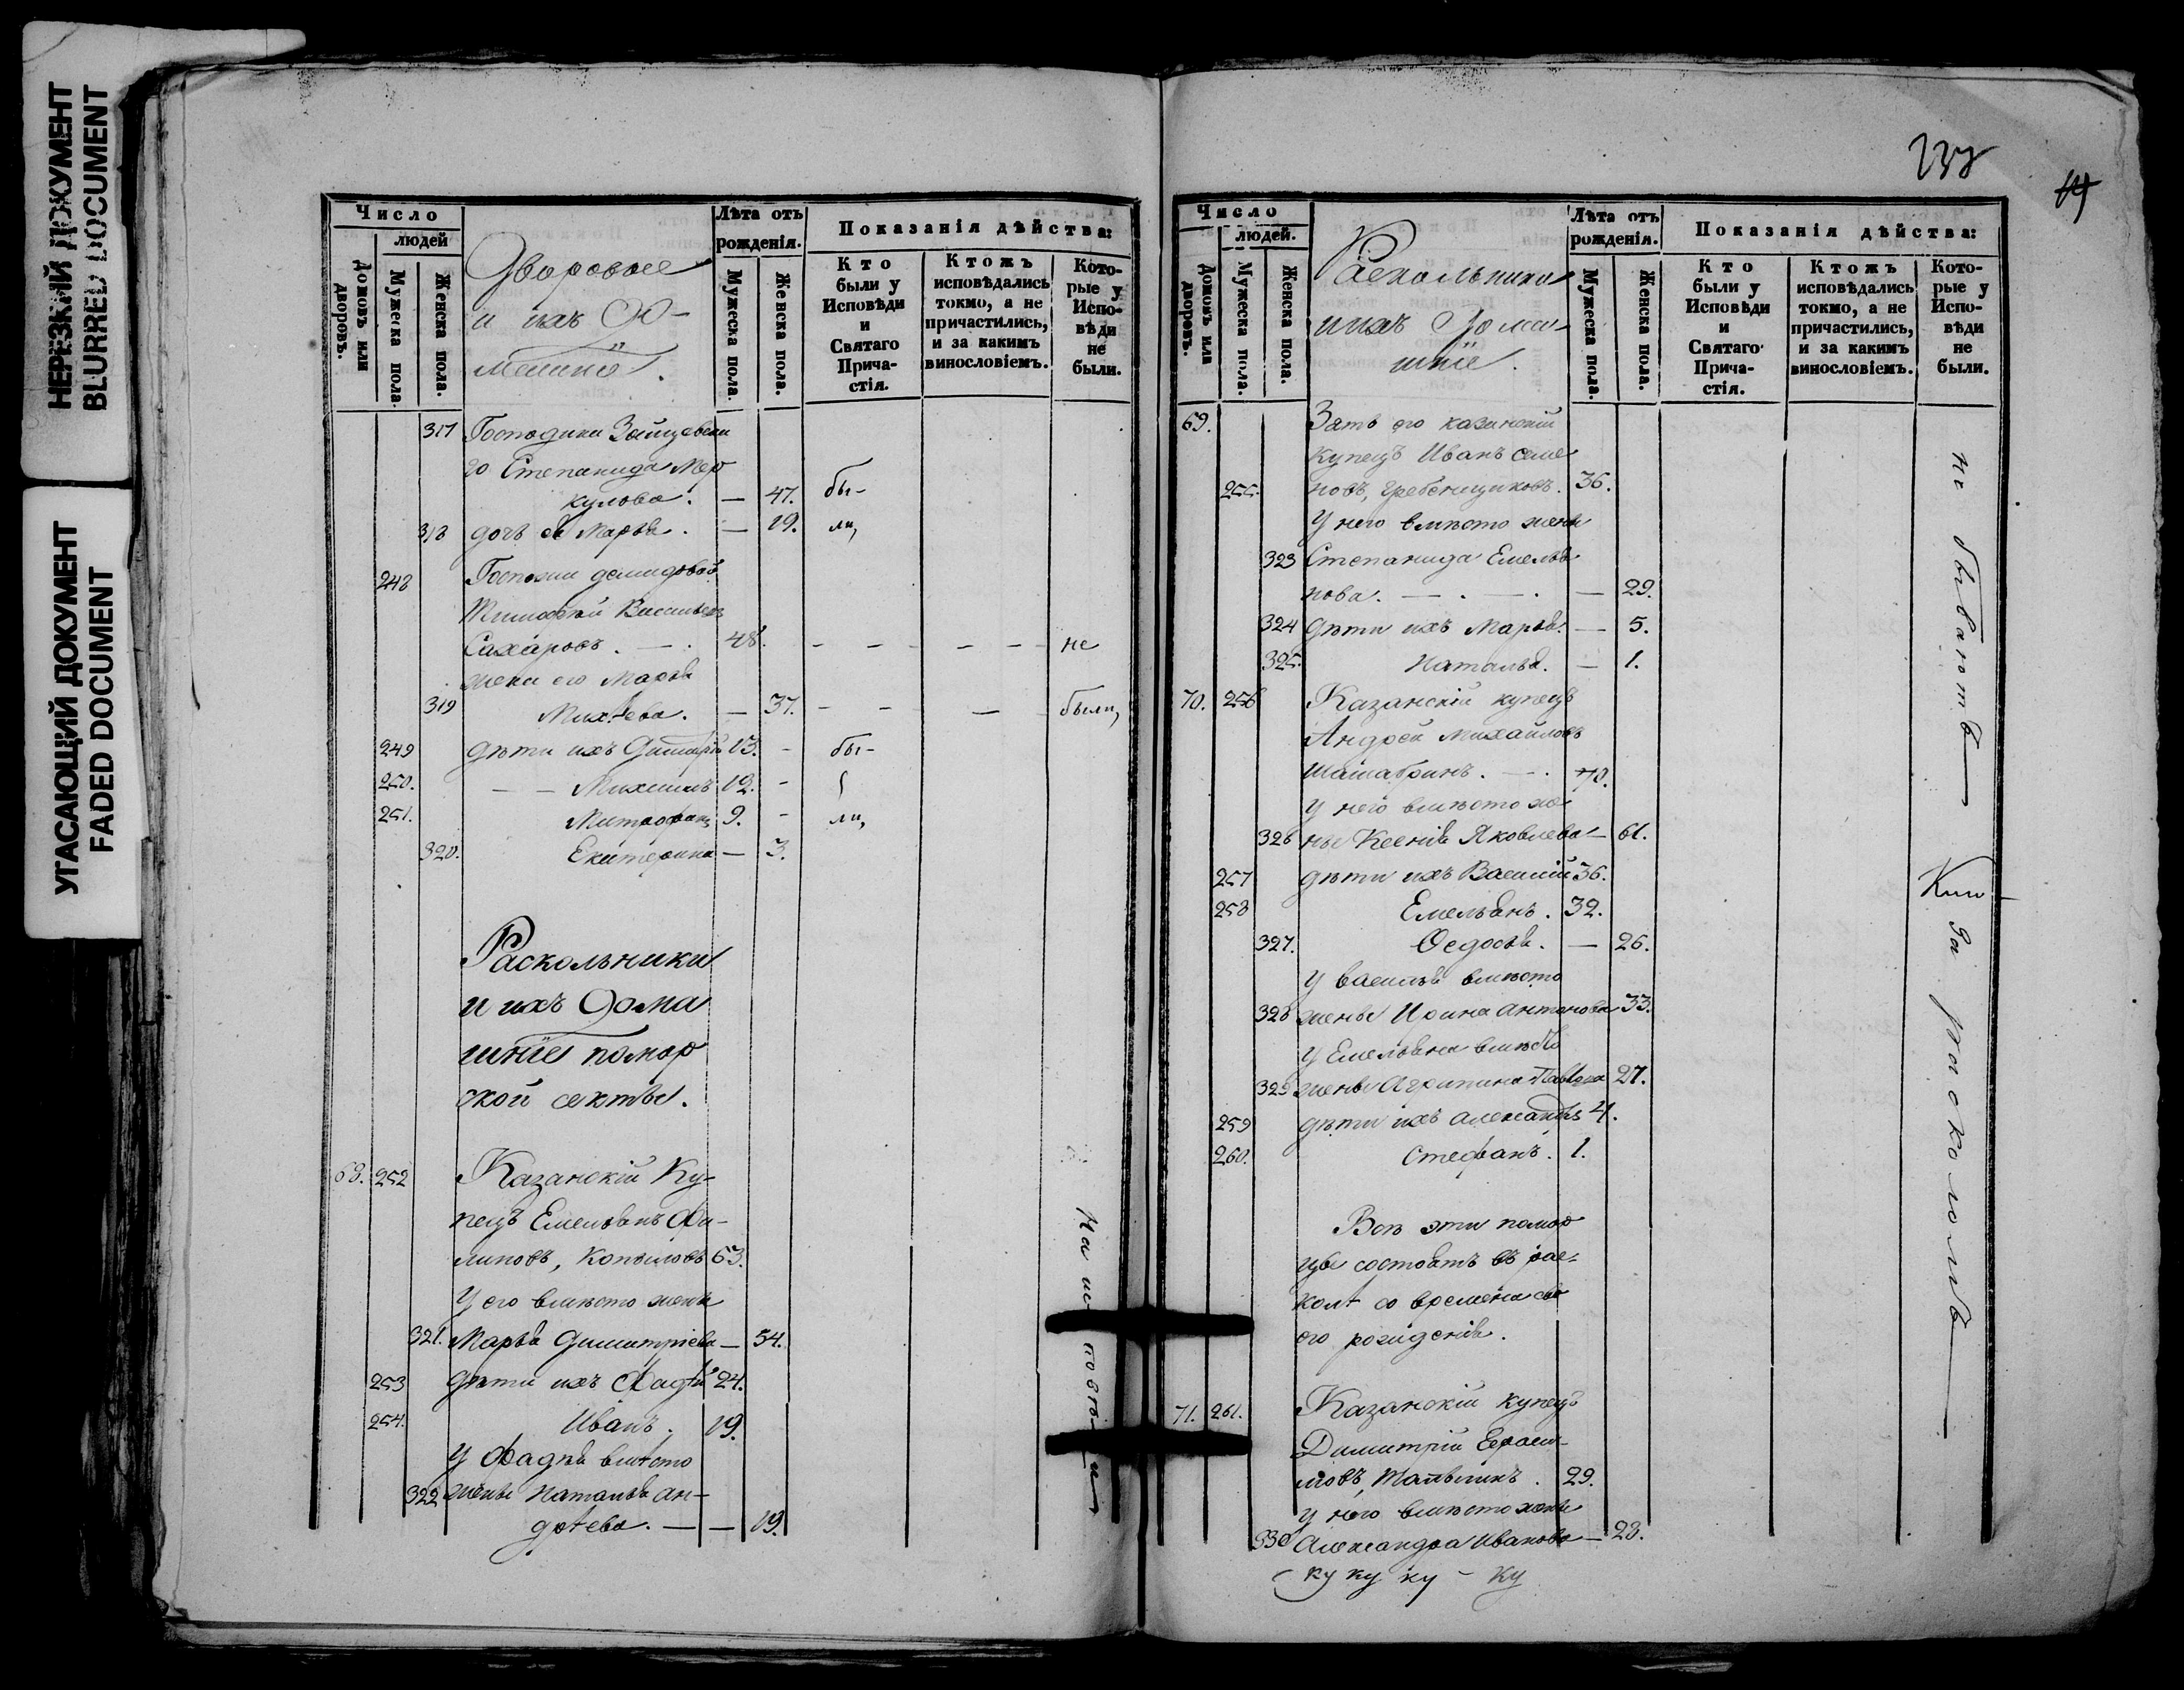 НЕРЕЗКИЙ ДОКУМЕНТ
BLURRED DOCUMENT
УГАСАЮЩИЙ ДОКУМЕНТ
FADED DOCUMENT
Число
людей
Домовъ или дворовъ.
Мужеска пола.
Женска пола.
Дворовые
и ихъ до-
машніе.
Лѣта отъ рожденія.
Мужеска пола.
Женска пола.
Показанія дѣйства:
Кто были у Исповѣди и Святаго Прича-стія.
Ктожъ исповѣдались токмо, а не причастились, и за какимъ винословіемъ.
Кото-рые у Испо-вѣди не были.
317 Господина
го Степанида Мер
кулова. — 47. бы-
318 дочь ея Марья. — 19. ли,
248 Госпожи демидовой
Тимофей Васильевъ
Сахаровъ. — 48. - - - - - не
жена его Марья
319 Михѣева. — 37. - - — были,
249 дѣти ихъ Димитрій 13. - бы-
250. — — Михаилъ 12. -
251. Митрофанъ 9. - ли,
320. Екатерина — 3.
Раскольники
и ихъ дома
шніе помор
ской секты.
68. 252 Казанскій Ку-
пецъ Емельянъ Фи-
липовъ, Копыловъ 63.
У его вмѣсто жены
321. Марья Димитріева — 54.
253 дѣти ихъ Фадѣй 24.
254. Иванъ. 19.
У Фадѣя вмѣсто
322 жены Наталья ан-
дрѣева. — — 19.
На исповѣди
237
14
Число
людей.
Домовъ или дворовъ.
Мужеска пола.
Женска пола.
Раскольники
и ихъ Дома-
шніе.
Лѣта отъ рожденія.
Мужеска пола.
Женска пола.
Показанія дѣйства:
Кто были у Исповѣди и Святаго Прича-стія.
Ктожъ исповѣдались токмо, а не причастились, и за какимъ винословіемъ.
Кото-рые у Испо-вѣди не были.
69. Зять его казанскій
купецъ Иванъ семе
255. новъ, Гребенщиковъ. 36.
У него вмѣсто жены
323 Степанида Емелья
нова. — . — . — 29.
324 дѣти ихъ Марья. — 5.
325. Наталья. — 1.
70. 256 Казанскій купецъ
Андрей Михайловъ
Шашабринъ. — . 70.
У него вмѣсто же
326 ны Ксенія Яковлева — 61.
257 дѣти ихъ Василій 36.
258 Емельянъ. 32.
327. Ѳедосья. — 26.
У василья вмѣсто
328 жены Ирина антонова 33.
У Емельяна вмѣсто
329 жены Агрипина Павлова 27.
259 дѣти ихъ александръ 4.
260. Стефанъ. 1.
Всѣ эти помор
цы состоятъ въ рас-
колѣ со времени сво
его рожденія.
71. 261. Казанскій купецъ
Димитрій Герасі-
мовъ, 29.
У него вмѣсто жены
330 Александра Иванова — 28.
ку ку ку - ку
не бываютъ —
за расколомъ —